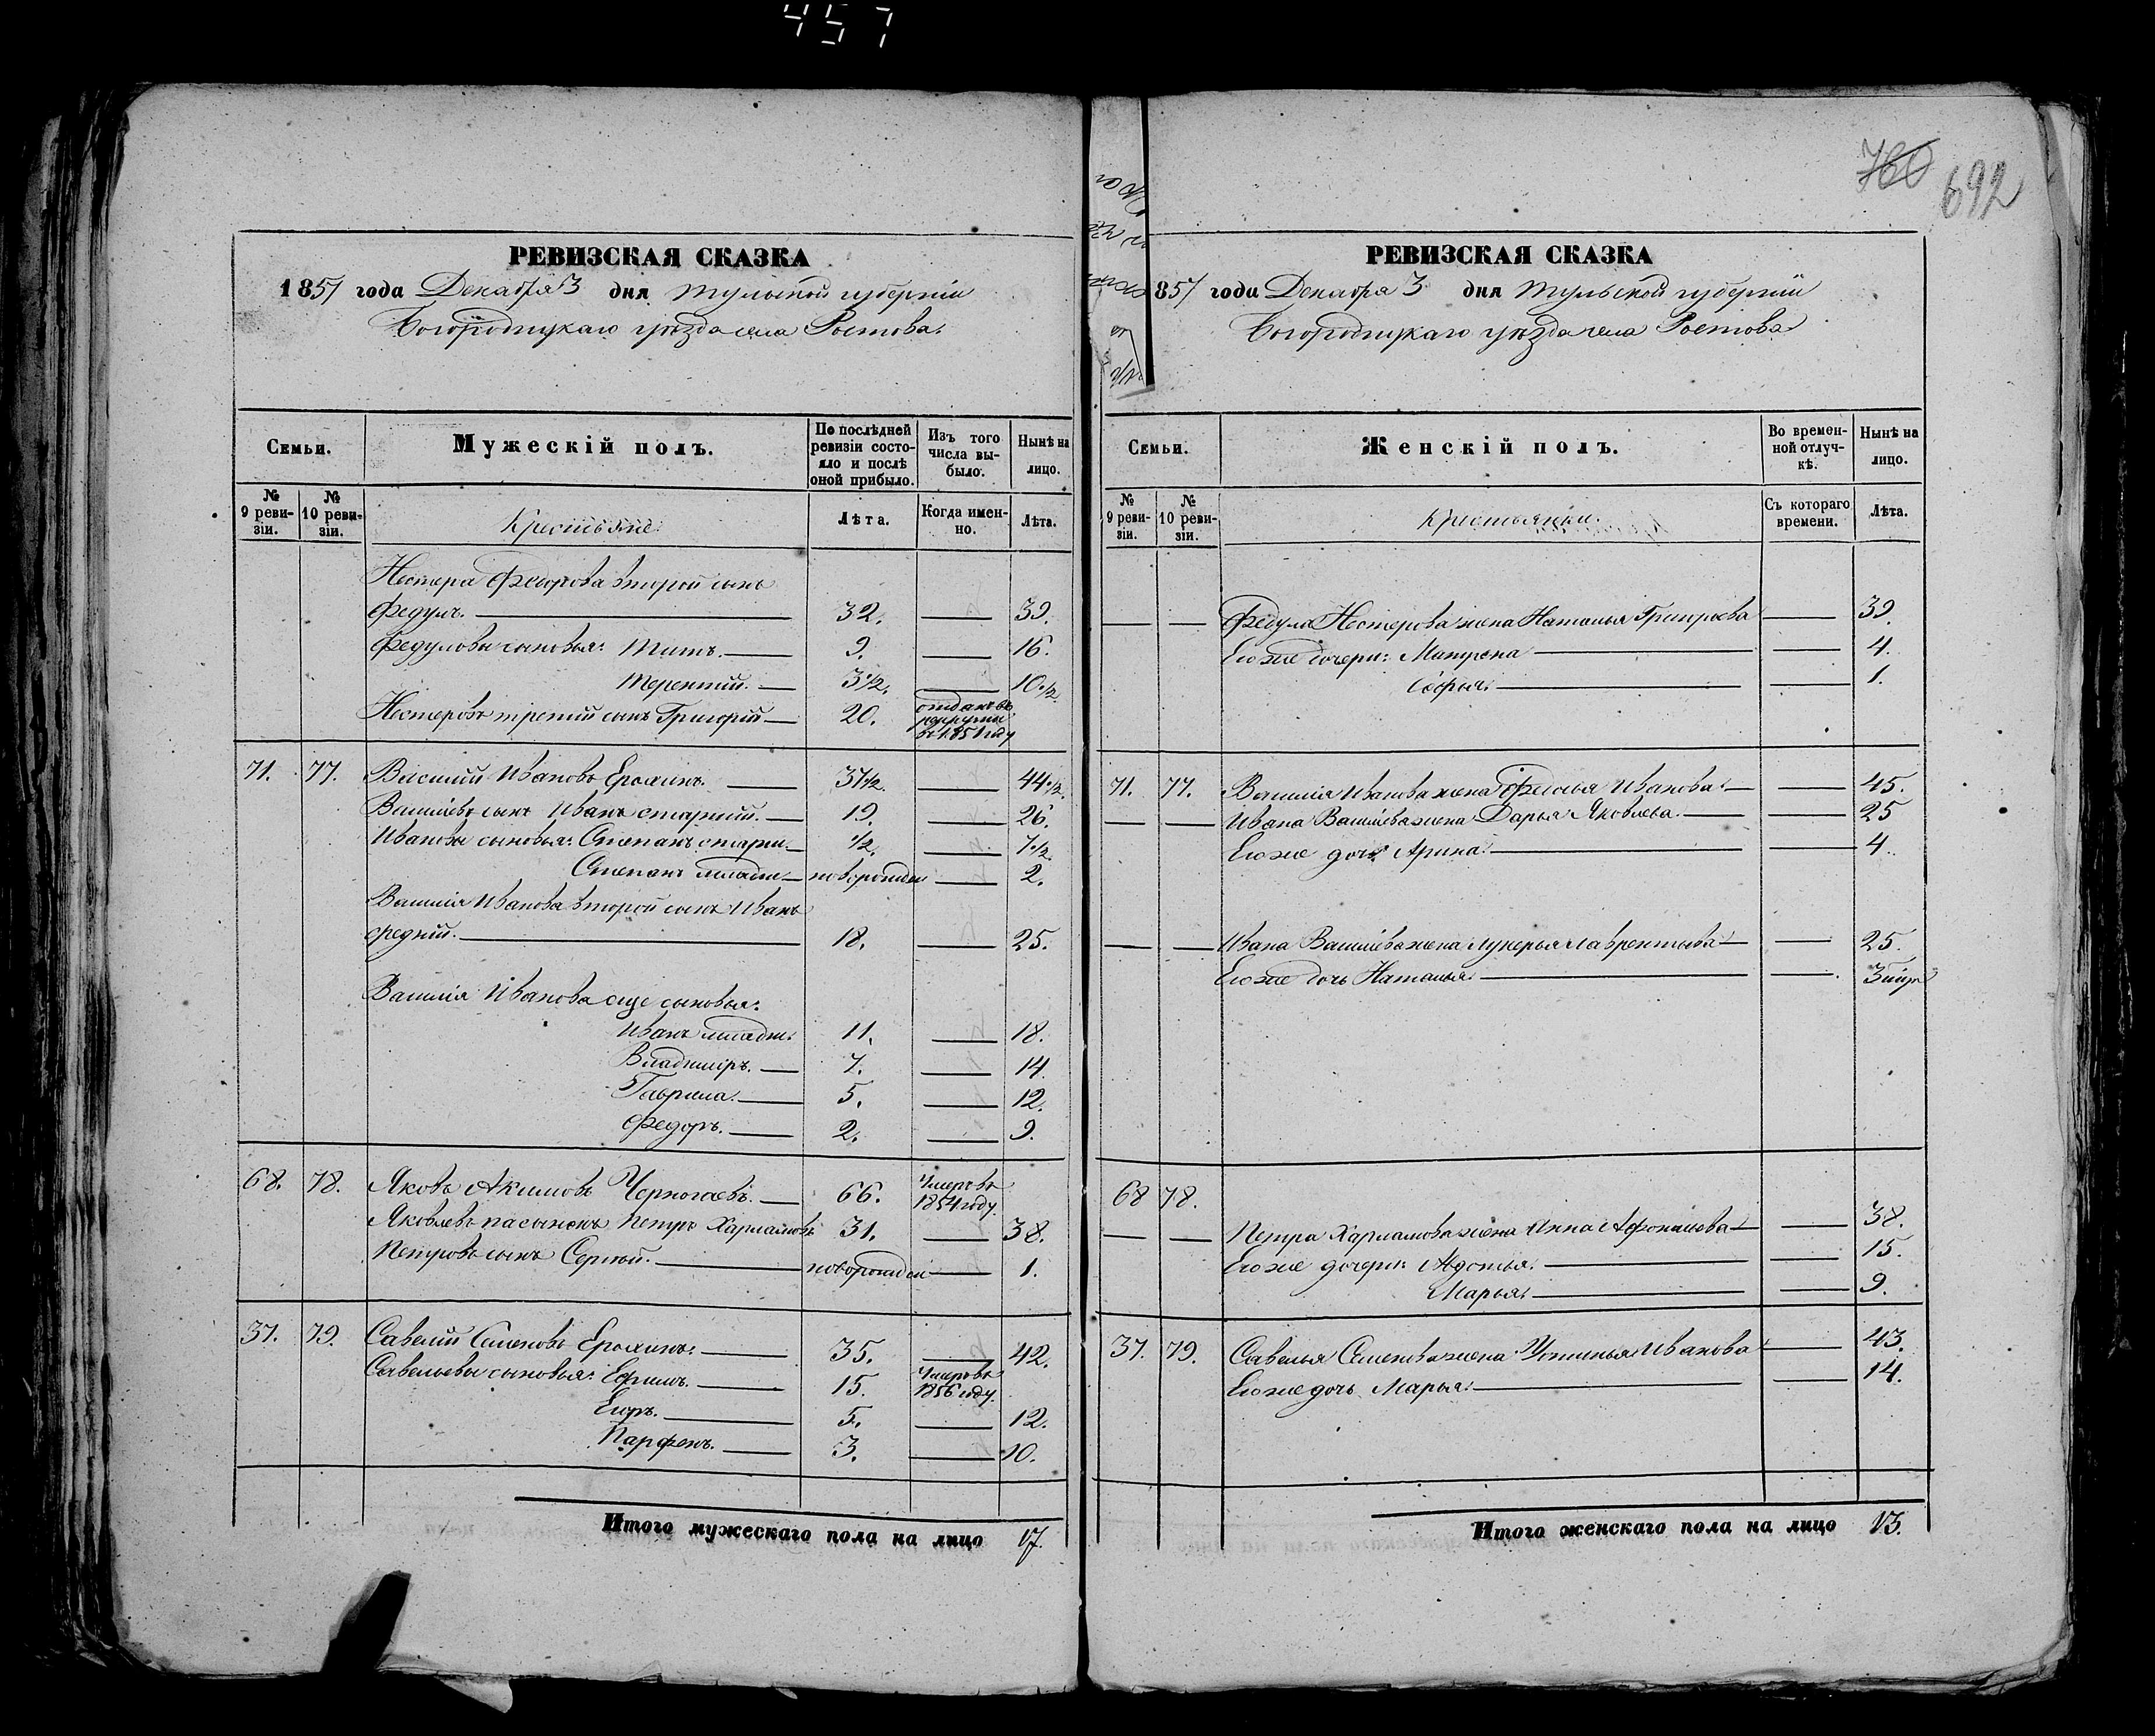 457
760 692
РЕВИЗСКАЯ СКАЗКА
1857 года Декабря 3 дня Тульской губерніи
Богородицкаго уѣзда села Ростова.
Семьи.
Мужескій полъ.
По послѣдней ревизіи состояло и послѣ оной прибыло.
Изъ того числа выбыло.
Нынѣ на лицо.
№ 9 ревизіи.
№ 10 ревизіи.
Крестьяне.
Лѣта.
Когда именно.
Лѣта.
Нестера Федорова второй сынъ
Федулъ. 32. 39.
Федуловы сыновья: Титъ. 9. 16.
Терентій. 3 1/2. 10 1/2
Нестеровъ третій сынъ Григорій 20. отданъ въ рекруты въ 1851 году
71. 77. Василій Ивановъ Ерохинъ. 37 1/2. 44 1/2.
Васильевъ сынъ Иванъ старшій. 19. 26.
Ивановы сыновья: Степанъ старш. 1/2. 7 1/2.
Степанъ младш. новорожден 2.
Василія Иванова второй сынъ Иванъ
средній. 18. 25.
Василія Иванова еще сыновья:
Иванъ младш. 11. 18.
Владиміръ. 7. 14.
Гаврила. 5. 12.
Федоръ. 2. 9.
68. 78. Яковъ Акимовъ 66. Умеръ въ 1854 году.
Яковлевъ пасынокъ Петръ Харламовъ 31. 38.
Петровъ сынъ Сергѣй. новорожден 1.
37. 79. Савелій Семеновъ Ерохинъ. 35. 42.
Савельевы сыновья: Ефимъ. 15. Умеръ въ 1856 году.
Егоръ. 5. 12.
Парфенъ. 3. 10.
Итого мужескаго пола на лицо 17.
РЕВИЗСКАЯ СКАЗКА
857 года Декабря 3 дня Тульской губерніи
Богородицкаго уѣзда села Ростова
Семьи.
Женскій полъ.
Во временной отлучкѣ.
Нынѣ на лицо.
№ 9 ревизіи.
№ 10 ревизіи.
Крестьянки.
Съ котораго времени.
Лѣта.
Федула Нестерова жена Наталья Григорьева 39.
Его же дочери: Матрена 4.
Софья. 1.
71. 77. Василія Иванова жена Федосья Иванова. 45.
Ивана Васильева жена Дарья Яковлева. 25
Его же дочь Арина. 4.
Ивана Васильева жена Лукерья Лаврентьева 25.
Его же дочь Наталья.
68 78.
Петра Харламова жена Анна Афонасьева 38.
Его же дочери: Авдотья. 15.
Марья. 9.
37. 79. Савелья Семенова жена Устинья Иванова 43.
Его же дочь Марья. 14.
Итого женскаго пола на лицо 13.